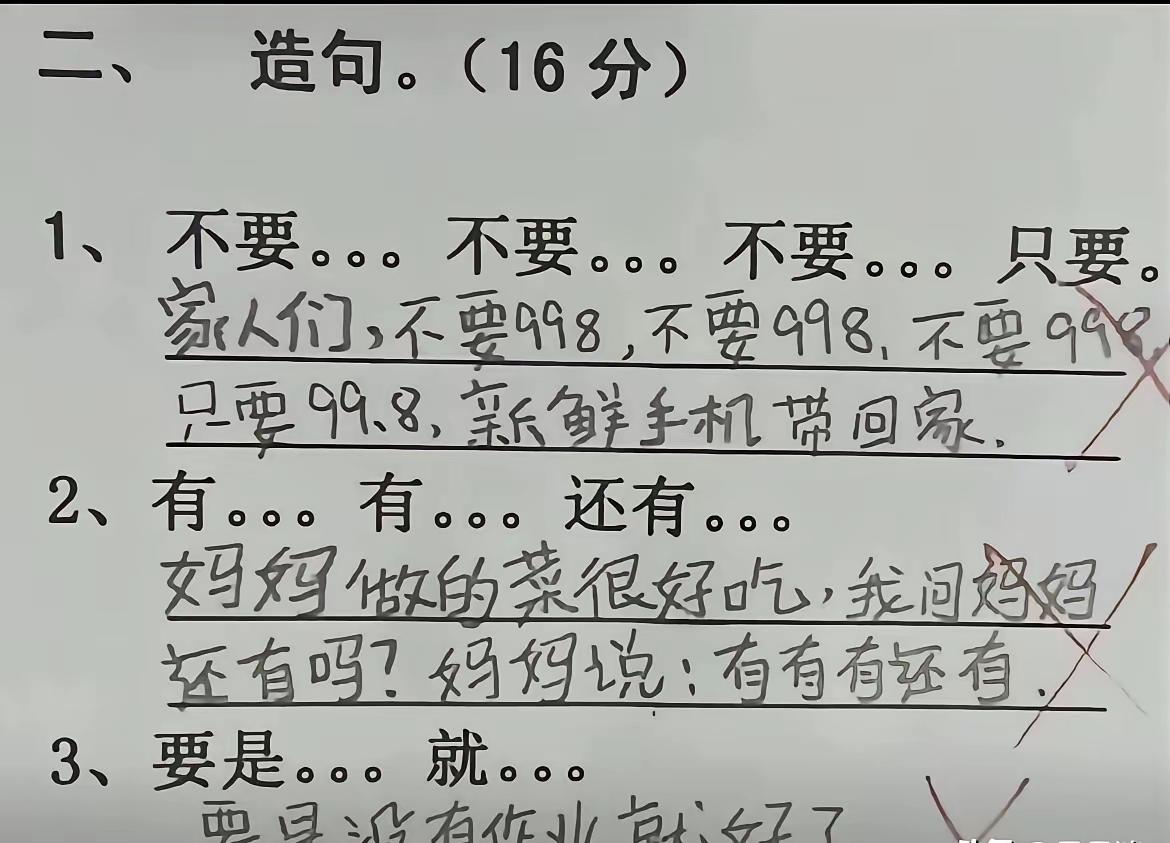 二、 造句。（16 分）
1、 不要。。。 不要。。。 不要。。。 只要。
家人们，不要998，不要998、不要998
只要99.8、新鲜手机带回家.
2、有。。。有。。。还有。。。
妈妈做的菜很好吃，我问妈妈
还有吗？妈妈说：有有有还有.
3、要是。。。就。。。
要是没有作业就好了